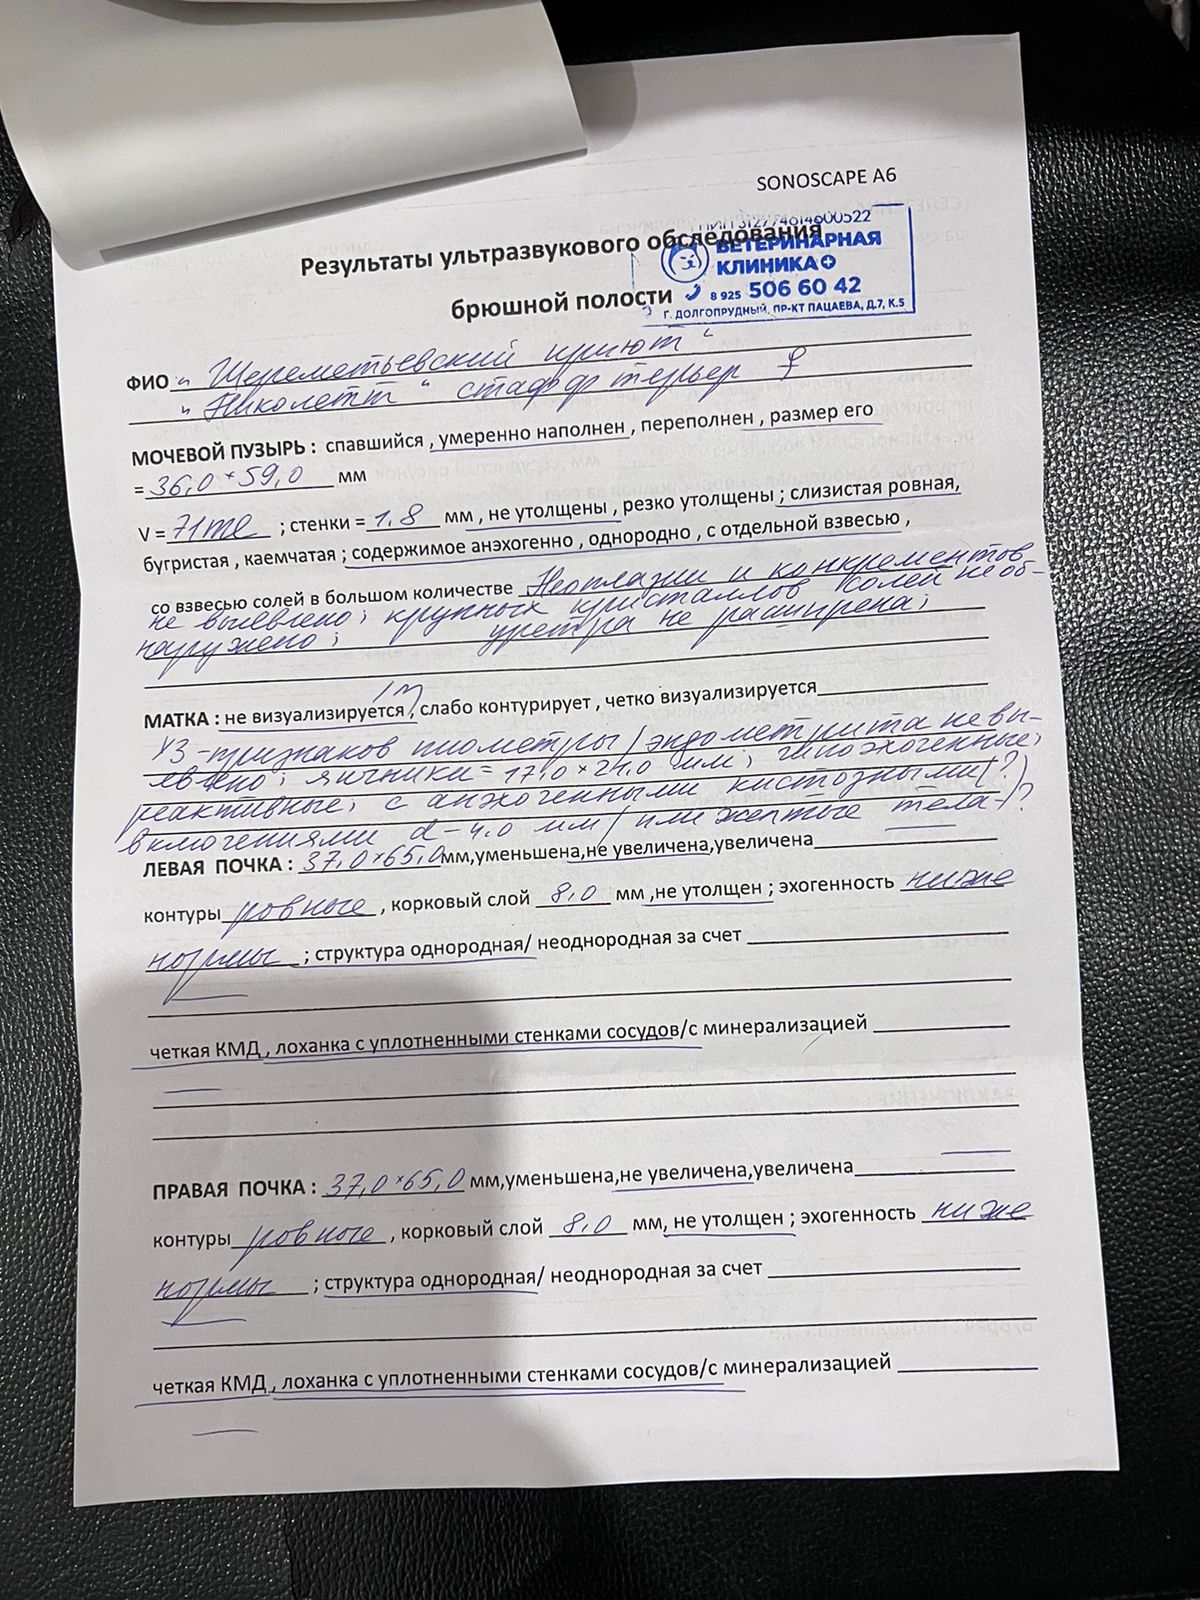 SONOSCAPE A6
Результаты ультразвукового обследования
брюшной полости
ВЕТЕРИНАРНАЯ
КЛИНИКА
8 925 506 60 42
Г. ДОЛГОПРУДНЫЙ, ПР-КТ ПАЦАЕВА, Д.7, К.5
ФИО „Шереметьевский приют“
„Николетт“ стафф терьер ♀
МОЧЕВОЙ ПУЗЫРЬ : спавшийся , умеренно наполнен , переполнен , размер его
= 36,0 × 59,0 мм
V = 71 ml ; стенки = 1,8 мм , не утолщены , резко утолщены ; слизистая ровная,
бугристая , каемчатая ; содержимое анэхогенно , однородно , с отдельной взвесью ,
со взвесью солей в большом количестве Неоплазии и конкрементов
не выявлено; крупных кристаллов солей не об-
наружено; уретра не расширена;
МАТКА : не визуализируется , слабо контурирует , четко визуализируется
УЗ-признаков пиометры/эндометрита не вы-
явлено; яичники = 17,0 × 24,0 мм; гипоэхогенные;
реактивные; с анэхогенными кистозными(?)
включениями d - 4,0 мм/ или желтые тела-?
ЛЕВАЯ ПОЧКА : 37,0 × 65,0 мм,уменьшена,не увеличена,увеличена
контуры ровные , корковый слой 8,0 мм ,не утолщен ; эхогенность ниже
нормы ; структура однородная/ неоднородная за счет
четкая КМД , лоханка с уплотненными стенками сосудов/с минерализацией
ПРАВАЯ ПОЧКА : 37,0 × 65,0 мм,уменьшена,не увеличена,увеличена
контуры ровные , корковый слой 8,0 мм, не утолщен ; эхогенность ниже
нормы ; структура однородная/ неоднородная за счет
четкая КМД , лоханка с уплотненными стенками сосудов/с минерализацией